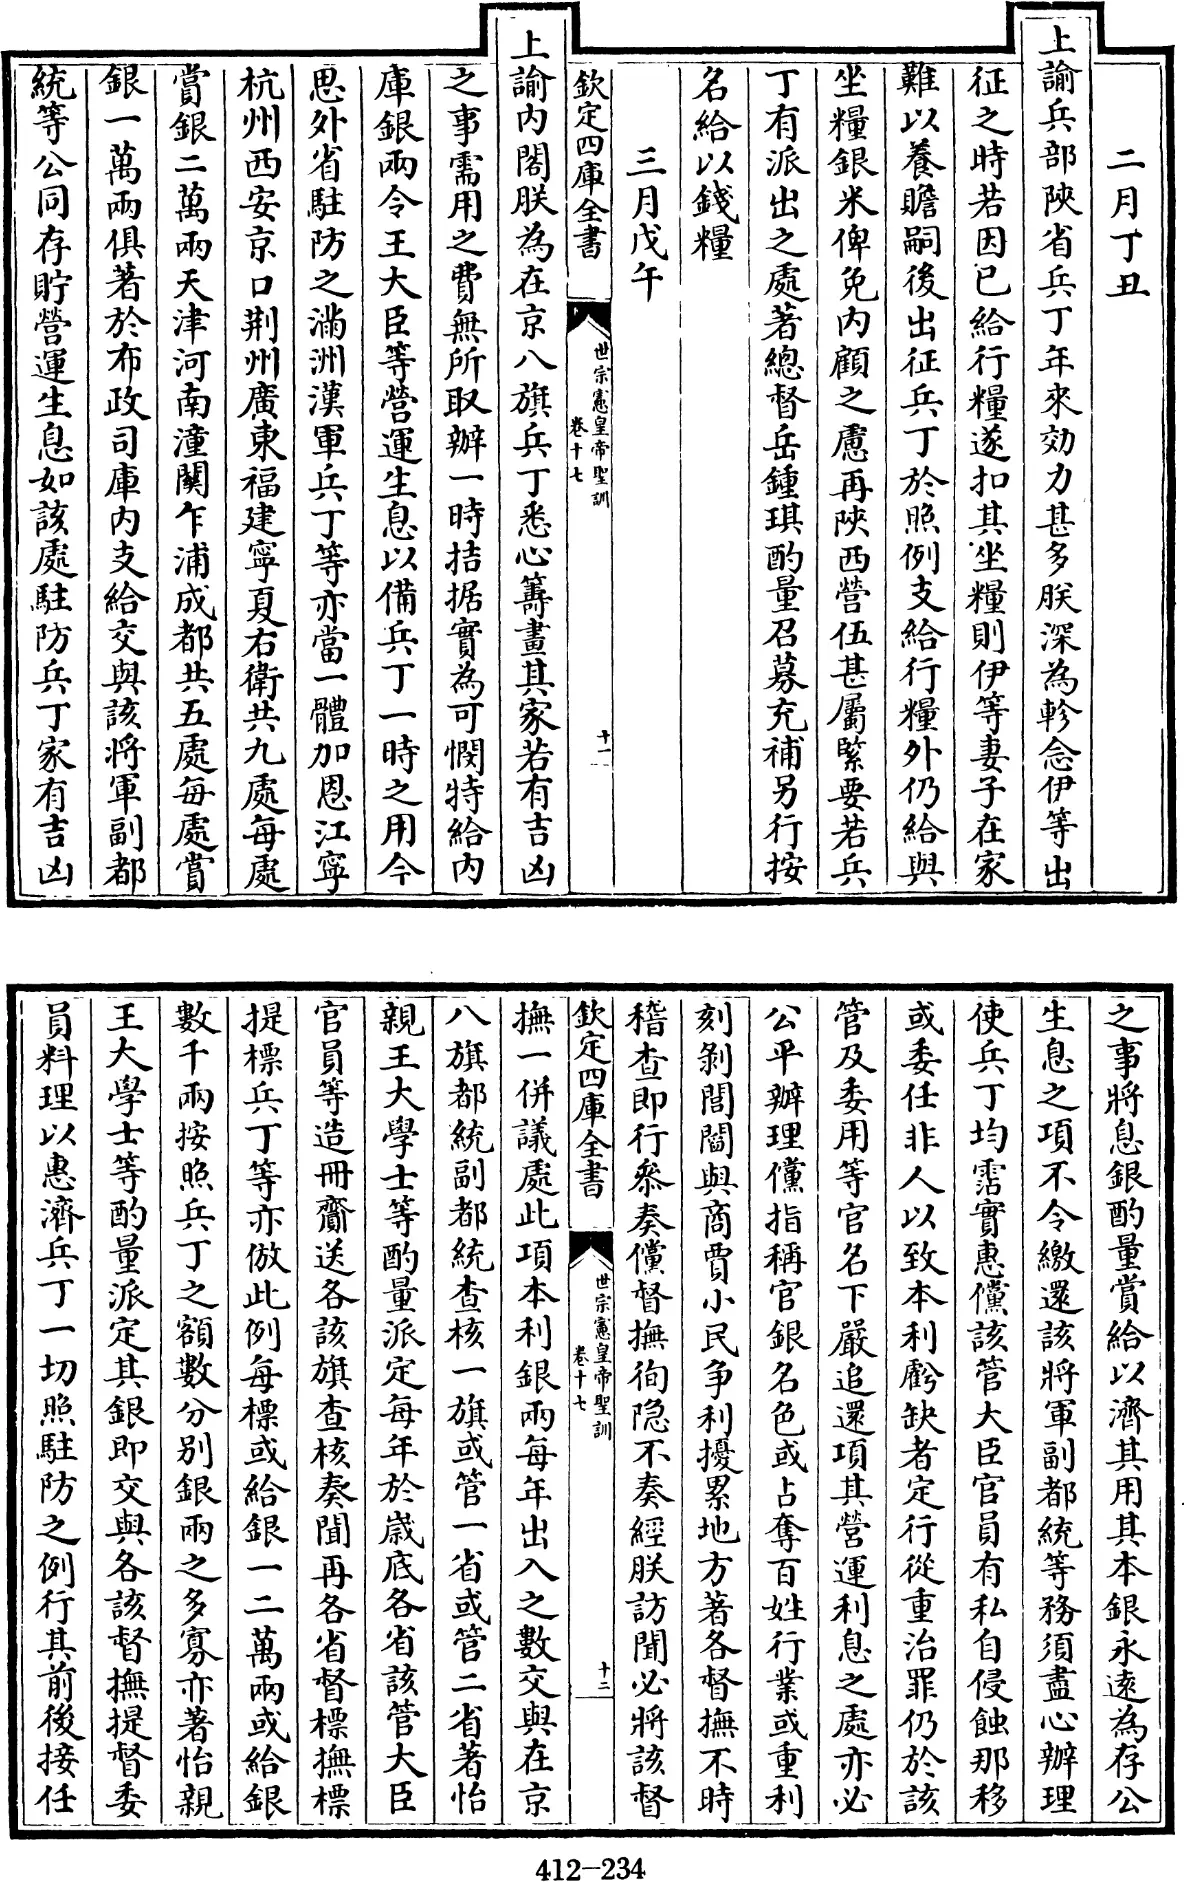 二月丁丑
上諭兵部陝省兵丁年來効力甚多朕深為軫念伊等出
征之時若因已給行糧遂扣其坐糧則伊等妻子在家
難以養贍嗣後出征兵丁於照例支給行糧外仍給與
坐糧銀米俾免内顧之慮再陝西營伍甚屬緊要若兵
丁有派出之處著總督岳鍾琪酌量召募充補另行按
名給以錢糧
三月戊午
欽定四庫全書
世宗憲皇帝聖訓
卷十七
十一
上諭内閣朕為在京八旗兵丁悉心籌畫其家若有吉凶
之事需用之費無所取辦一時拮据實為可憫特給内
庫銀兩令王大臣等營運生息以備兵丁一時之用今
思外省駐防之滿洲漢軍兵丁等亦當一體加恩江寧
杭州西安京口荆州廣東福建寧夏右衛共九處每處
賞銀二萬兩天津河南潼關乍浦成都共五處每處賞
銀一萬兩俱著於布政司庫内支給交與該將軍副都
統等公同存貯營運生息如該處駐防兵丁家有吉凶
之事將息銀酌量賞給以濟其用其本銀永遠為存公
生息之項不令繳還該將軍副都統等務須盡心辦理
使兵丁均霑實惠儻該管大臣官員有私自侵蝕那移
或委任非人以致本利虧缺者定行從重治罪仍於該
管及委用等官名下嚴追還項其營運利息之處亦必
公平辦理儻指稱官銀名色或占奪百姓行業或重利
刻剝閭閻與商賈小民争利擾累地方著各督撫不時
稽查即行叅奏儻督撫徇隐不奏經朕訪聞必將該督
欽定四庫全書
世宗憲皇帝聖訓
卷十七
十二
撫一併議處此項本利銀兩每年出入之數交與在京
八旗都統副都統查核一旗或管一省或管二省著怡
親王大學士等酌量派定每年於歲底各省該管大臣
官員等造冊齎送各該旗查核奏聞再各省督標撫標
提標兵丁等亦倣此例每標或給銀一二萬兩或給銀
數千兩按照兵丁之額數分别銀兩之多寡亦著怡親
王大學士等酌量派定其銀即交與各該督撫提督委
員料理以惠濟兵丁一切照駐防之例行其前後接任
412-234